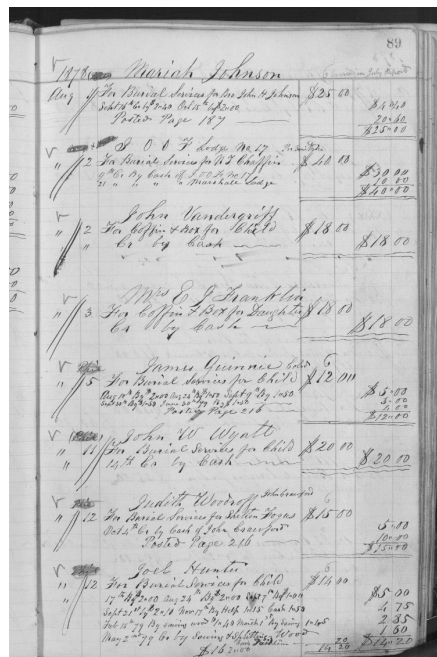 89
1878 Mariah Johnson
Aug 1 For Burial Services for Bro John H. Johnson $25.00
Sept 26th Cr By $2.40 Oct 15th By $2.00 $4.40
Posted Page 187 20.60
$25.00
I O O F Lodge No 17
" 2 For Burial Services for N T Chaffin $40.00
Cr By Cash of I O O F No 17 $30.00
21 " " " " Marshall Lodge 10.00
$40.00
John Vandergriff
" 2 For Coffin & Box for Child $18.00
" Cr by Cash $18.00
Mrs E J Franklin
" 3 For Coffin & Box for Daughter $18.00
Cr by Cash $18.00
James Guinnie Cold
" 5 For Burial Services for Child $12.00
$5.00
Posting Page 216
$12.00
John W. Wyatt
" 11 For Burial Services for Child $20.00
14th Cr by Cash $20.00
Judith Woodroff John Crawford
" 12 For Burial Services for $15.00
Oct 4th Cr by Cash of John Crawford 5.00
Posted Page 216 10.00
$15.00
Joel Hunter
" 12 For Burial Services for Child $14.00
17th By $2.00 Aug 24th By $2.00 $5.00
Sept 21st Nov 17th By Help Cash 4.75
Feb 15th 79 By 2.35
May 2nd 79 Cr by Sawing & Splitting Wood 1.60
$14.20